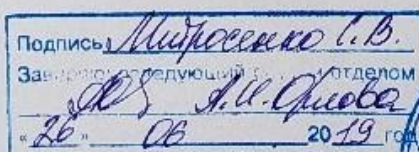 Подпись Митросенко С.В.
Заведующий отделом
А.И. Орлова
"26" 06 2019 год